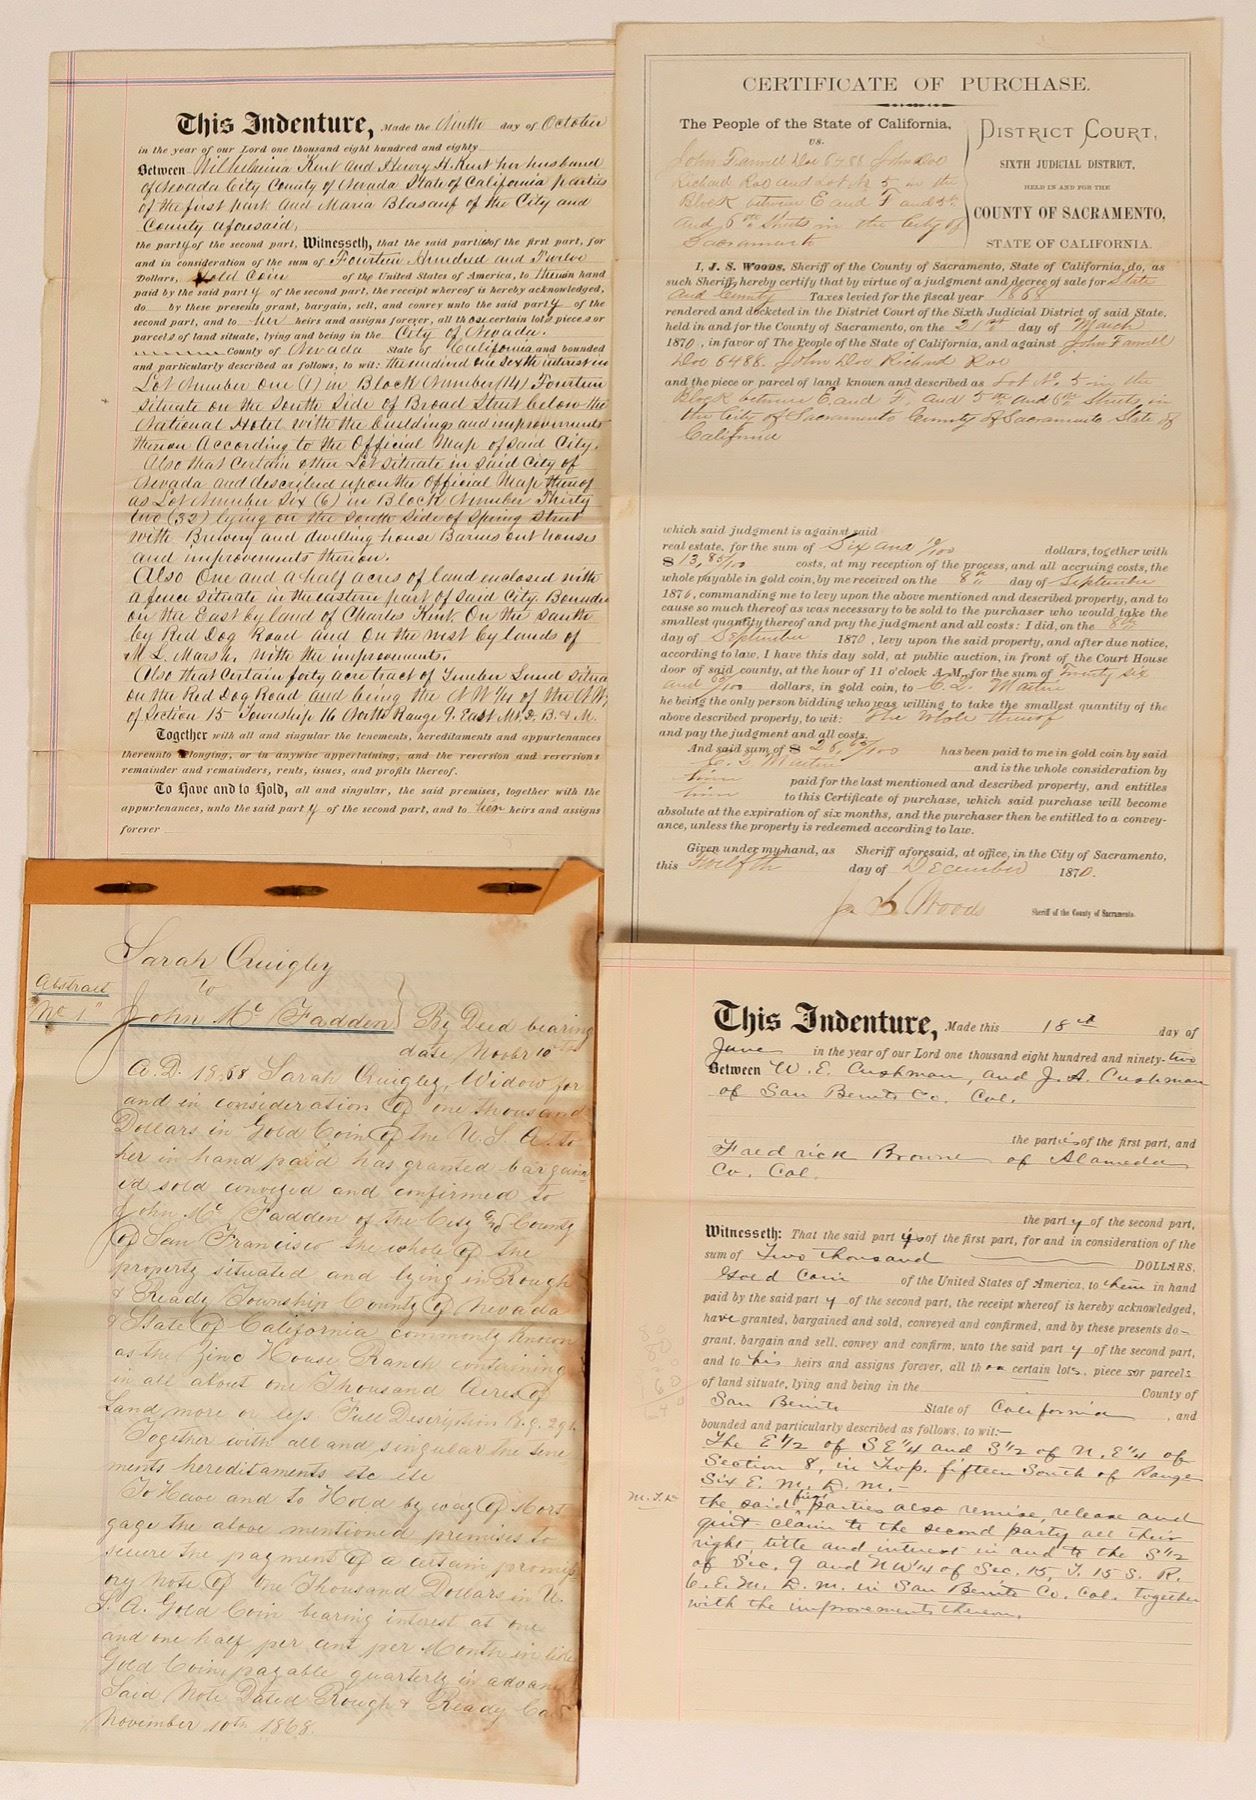 This Indenture, Made the Ninth day of October
in the year of our Lord one thousand eight hundred and eighty
Between Wilhelmina Kent and Henry H. Kent her husband
of Nevada City County of Nevada State of California parties
of the first part and Maria Blasauf of the City and
County aforesaid,
the party of the second part, Witnesseth, that the said parties of the first part, for
and in consideration of the sum of Fourteen Hundred and Twelve
Dollars, Gold Coin of the United States of America, to them in hand
paid by the said party of the second part, the receipt whereof is hereby acknowledged,
do by these presents grant, bargain, sell, and convey unto the said party of the
second part, and to her heirs and assigns forever, all those certain lots pieces or
parcels of land situate, lying and being in the City of Nevada.
County of Nevada State of California and bounded
and particularly described as follows, to wit: the undivd one sixth interest in
Lot Number One (1) in Block Number (14) Fourteen
Situate on the South Side of Broad Street below the
National Hotel with the buildings and improvements
thereon According to the Official Map of said City.
Also that Certain other Lot situate in said City of
Nevada and described upon the Official Map thereof
as Lot Number Six (6) in Block Number Thirty
two (32) lying on the South Side of Spring Street
with Brewery and dwelling house Barns out houses
and improvements thereon.
Also One and a half acres of land enclosed with
a fence situate in the eastern part of said City. Bounded
on the East by land of Charles Kent. On the South
by Red Dog Road and On the west by lands of
M. L. Marsh. with the improvements.
Also that Certain forty acre tract of Timber Land Situa
on the Red Dog Road and being the N W 1/4 of the N W
of Section 15 Township 16 North Range 9. East M. D. B. & M.
Together with all and singular the tenements, hereditaments and appurtenances
thereunto belonging, or in anywise appertaining, and the reversion and reversions
remainder and remainders, rents, issues, and profits thereof.
To Have and to Hold, all and singular, the said premises, together with the
appurtenances, unto the said party of the second part, and to her heirs and assigns
forever
CERTIFICATE OF PURCHASE.
The People of the State of California,
vs.
John Farrell Doe 6488 John Doe
Richard Roe and Lot No 5 in the
Block between E and F and 5th
and 6th Streets in the City of
Sacramento
DISTRICT COURT,
SIXTH JUDICIAL DISTRICT,
HELD IN AND FOR THE
COUNTY OF SACRAMENTO,
STATE OF CALIFORNIA.
I, J. S. WOODS, Sheriff of the County of Sacramento, State of California, do, as
such Sheriff, hereby certify that by virtue of a judgment and decree of sale for State
and County Taxes levied for the fiscal year 1868
rendered and docketed in the District Court of the Sixth Judicial District of said State,
held in and for the County of Sacramento, on the 21st day of March
1870, in favor of The People of the State of California, and against John Farrell
Doe 6488. John Doe Richard Roe
and the piece or parcel of land known and described as Lot No. 5 in the
Block between E. and F. and 5th and 6th Streets in
the City of Sacramento County of Sacramento State of
California
which said judgment is against said
real estate, for the sum of Six and 10/100 dollars, together with
$ 13,85/100 costs, at my reception of the process, and all accruing costs, the
whole payable in gold coin, by me received on the 8th day of September
1870, commanding me to levy upon the above mentioned and described property, and to
cause so much thereof as was necessary to be sold to the purchaser who would take the
smallest quantity thereof and pay the judgment and all costs: I did, on the 8th
day of September 1870, levy upon the said property, and after due notice,
according to law, I have this day sold, at public auction, in front of the Court House
door of said county, at the hour of 11 o'clock A. M., for the sum of Twenty six
and /100 dollars, in gold coin, to Martin
he being the only person bidding who was willing to take the smallest quantity of the
above described property, to wit: The whole thereof
and pay the judgment and all costs.
And said sum of $ 26, /100 has been paid to me in gold coin by said
Martin and is the whole consideration by
him paid for the last mentioned and described property, and entitles
him to this Certificate of purchase, which said purchase will become
absolute at the expiration of six months, and the purchaser then be entitled to a convey-
ance, unless the property is redeemed according to law.
Given under my hand, as Sheriff aforesaid, at office, in the City of Sacramento,
this Twelfth day of December 1870.
J. S. Woods Sheriff of the County of Sacramento.
Sarah Quigley
to
Abstract
No 1"
John Mc Fadden } By Deed bearing
date Novbr 10th
A. D. 1868 Sarah Quigley, Widow for
and in consideration of one thousand
Dollars in Gold Coin of the U. S. A. to
her in hand paid has granted bargain
ed sold conveyed and confirmed to
John Mc Fadden of the City and County
of San Francisco the whole of the
property situated and lying in Rough
& Ready Township County of Nevada
& State of California commonly known
as the Zinc House Ranch containing
in all about one Thousand Acres of
Land more or less Full Description Pg. 291.
Together with all and singular the tene
ments hereditaments etc etc
To Have and to Hold by way of Mort
gage the above mentioned premises to
secure the payment of a certain promiss
ory Note of One Thousand Dollars in U.
S. A. Gold Coin bearing interest at one
and one half per cent per Month in like
Gold Coin, payable quarterly in advan
Said Note Dated Rough & Ready Cal
November 10th 1868.
This Indenture, Made this 18th day of
June in the year of our Lord one thousand eight hundred and ninety-two
Between W. E. Cushman, and J. A. Cushman
of San Benito Co. Cal.
the parties of the first part, and
Fredrick Browne of Alameda
Co. Cal.
the party of the second part,
Witnesseth: That the said parties of the first part, for and in consideration of the
sum of Two thousand DOLLARS,
Gold Coin of the United States of America, to them in hand
paid by the said party of the second part, the receipt whereof is hereby acknowledged,
have granted, bargained and sold, conveyed and confirmed, and by these presents do
grant, bargain and sell, convey and confirm, unto the said party of the second part,
and to his heirs and assigns forever, all those certain lots, pieces or parcels
of land situate, lying and being in the County of
San Benito State of California, and
bounded and particularly described as follows, to wit:—
The E 1/2 of S E 1/4 and S 1/2 of N. E 1/4 of
Section 8, in Twp. fifteen South of Range
Six E. M. D. M.
the said first parties also remise, release and
quit claim to the second party all their
right, title and interest in and to the S 1/2
of Sec. 9 and NW 1/4 of Sec. 15, T. 15 S. R.
6. E. M. D. M. in San Benito Co. Cal. together
with the improvements thereon.